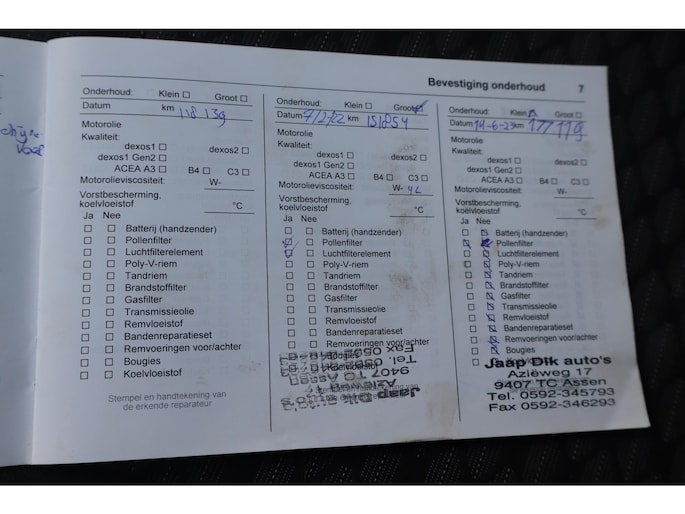 Bevestiging onderhoud 7
Onderhoud: Klein Groot
Datum km 118 139
Motorolie
Kwaliteit:
dexos1 dexos2
dexos1 Gen2
ACEA A3 B4 C3
Motorolieviscositeit: W-
Vorstbescherming,
koelvloeistof °C
Ja Nee
Batterij (handzender)
Pollenfilter
Luchtfilterelement
Poly-V-riem
Tandriem
Brandstoffilter
Gasfilter
Transmissieolie
Remvloeistof
Bandenreparatieset
Remvoeringen voor/achter
Bougies
Koelvloeistof
Stempel en handtekening van
de erkende reparateur
Onderhoud: Klein Groot
Datum 7/2/22 km 151854
Motorolie
Kwaliteit:
dexos1 dexos2
dexos1 Gen2
ACEA A3 B4 C3
Motorolieviscositeit: W- 4L
Vorstbescherming,
koelvloeistof °C
Ja Nee
Batterij (handzender)
Pollenfilter
Luchtfilterelement
Poly-V-riem
Tandriem
Brandstoffilter
Gasfilter
Transmissieolie
Remvloeistof
Bandenreparatieset
Remvoeringen voor/achter
Bougies
Koelvloeistof
Jaap Dik auto's
Aziëweg 17
9407 TC Assen
Onderhoud: Klein Groot
Datum 14-6-23 km 177 119
Motorolie
Kwaliteit:
dexos1 dexos2
dexos1 Gen2
ACEA A3 B4 C3
Motorolieviscositeit: W-
Vorstbescherming,
koelvloeistof °C
Ja Nee
Batterij (handzender)
Pollenfilter
Luchtfilterelement
Poly-V-riem
Tandriem
Brandstoffilter
Gasfilter
Transmissieolie
Remvloeistof
Bandenreparatieset
Remvoeringen voor/achter
Bougies
Jaap Dik auto's
Aziëweg 17
9407 TC Assen
Tel. 0592-345793
Fax 0592-346293